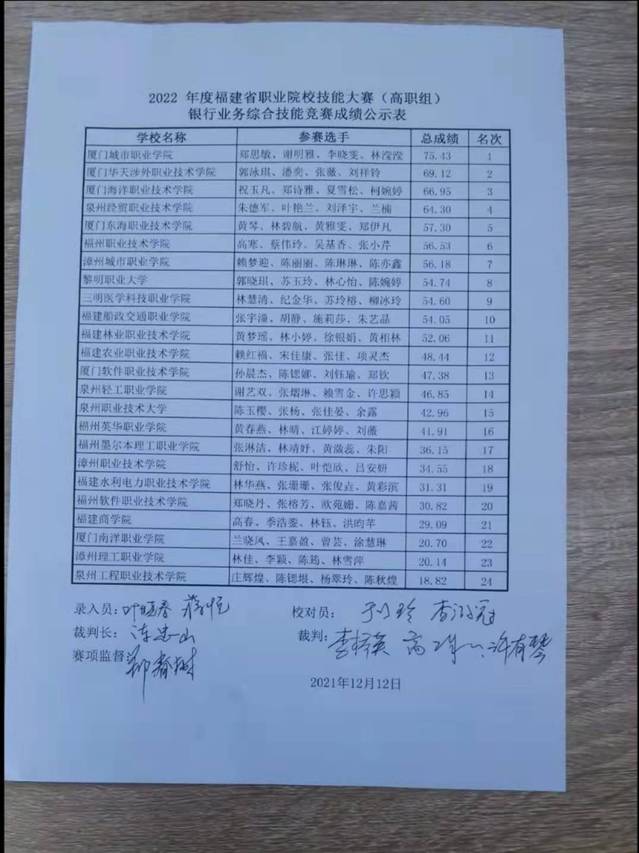 2022 年度福建省职业院校技能大赛（高职组）
银行业务综合技能竞赛成绩公示表
学校名称 参赛选手 总成绩 名次
厦门城市职业学院 郑思敏、谢明雅、李晓雯、林滢滢 75.43 1
厦门华天涉外职业技术学院 郭泳琪、潘奕、张薇、刘祥铃 69.12 2
厦门海洋职业技术学院 祝玉凡、郑诗雅、夏雪松、柯婉婷 66.95 3
泉州经贸职业技术学院 朱德军、叶艳兰、刘泽宇、兰楠 64.30 4
厦门东海职业技术学院 黄琴、林碧航、黄雅雯、郑伊凡 57.30 5
福州职业技术学院 高寒、蔡伟玲、吴基香、张小芹 56.53 6
漳州城市职业学院 赖梦迎、陈丽丽、陈琳琳、陈亦鑫 56.18 7
黎明职业大学 郭晓琪、苏玉玲、林心怡、陈婉婷 54.74 8
三明医学科技职业学院 林慧清、纪金华、苏玲榕、柳冰玲 54.60 9
福建船政交通职业学院 张宇潼、胡静、施莉莎、朱艺晶 54.05 10
福建林业职业技术学院 黄梦瑶、林小婷、徐银娟、黄相林 52.06 11
福建农业职业技术学院 赖红福、宋佳康、张佳、项灵杰 48.44 12
厦门软件职业技术学院 孙晨杰、陈锶娜、刘钰瑜、郑钦 47.38 13
泉州轻工职业学院 谢艺双、张熠琳、赖雪金、许思颖 46.85 14
泉州职业技术大学 陈玉樱、张杨、张佳晏、余露 42.96 15
福州英华职业学院 黄春燕、林晴、江婷婷、刘薇 41.91 16
福州墨尔本理工职业学院 张淋洁、林靖妤、黄薇蕊、朱阳 36.15 17
漳州职业技术学院 舒怡、许珍枙、叶恺欣、吕安妍 34.55 18
福建水利电力职业技术学院 林华燕、张珊珊、张俊垚、黄彩滨 31.31 19
福州软件职业技术学院 郑晓丹、张榕芳、欧苑姗、陈嘉茜 30.82 20
福建商学院 高春、季浩雯、林钰、洪昀苹 29.09 21
厦门南洋职业学院 兰晓凤、王嘉盈、曾芸、涂慧琳 20.70 22
漳州理工职业学院 林佳、李颖、陈筠、林雪萍 20.14 23
泉州工程职业技术学院 庄辉煌、陈锶垠、杨翠玲、陈秋煌 18.82 24
录入员： 校对员：
裁判长： 裁判： 许有琴
赛项监督： 郑春树
2021年12月12日